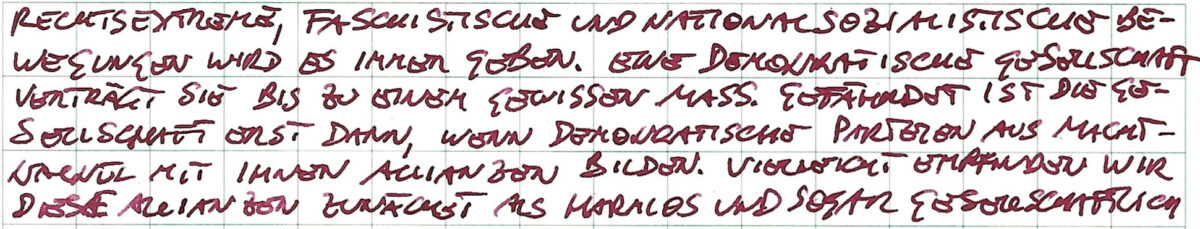 RECHTSEXTREME, FASCHISTISCHE UND NATIONALSOZIALISTISCHE BE-
WEGUNGEN WIRD ES IMMER GEBEN. EINE DEMOKRATISCHE GESELLSCHAFT
VERTRÄGT SIE BIS ZU EINEM GEWISSEN MASS. GEFÄHRDET IST DIE GE-
SELLSCHAFT ERST DANN, WENN DEMOKRATISCHE PARTEIEN AUS MACHT-
KALKÜL MIT IHNEN ALLIANZEN BILDEN. VIELLEICHT EMPFINDEN WIR
DIESE ALLIANZEN ZUNÄCHST ALS HARMLOS UND SOGAR GESELLSCHAFTLICH